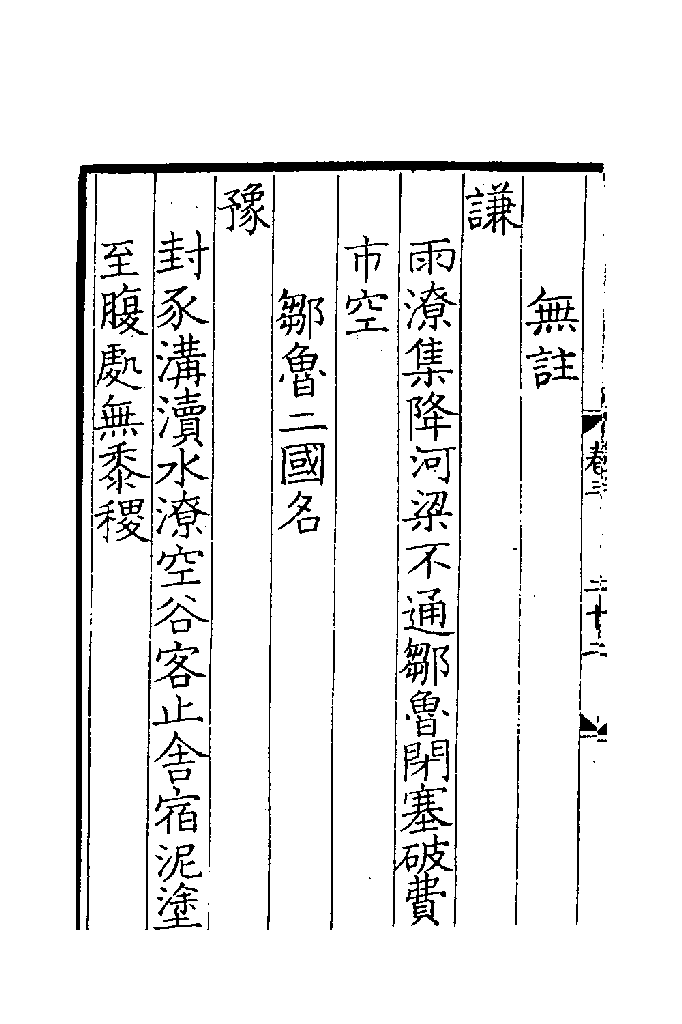 卷三
二十二
無註
謙
雨潦集降河梁不通鄒魯閉塞破費
市空
鄒魯二國名
豫
封豕溝瀆水潦空谷客止舍宿泥塗
至腹處無黍稷